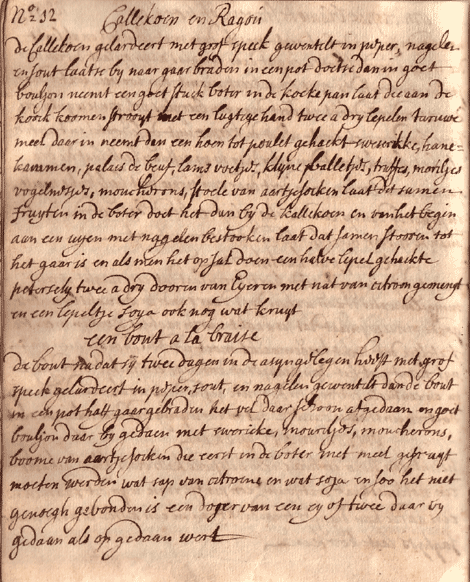 No 12 Callekoen en Ragou
de Callekoen gelardeert met grof speck gewentelt in peper, nagelen
en sout laatse by naar gaar braden in een pot doetse dan in goet
bouljon neemt een goet stuck boter in de koeke pan laat die aan de
koock koomen strooyt met een lugtige hand twee a dry lepelen taruwe
meel daar in neemt dan een hoen tot poulet gehackt sweserikke, hane
kammen, palais de beuf, lams voetjes, klyne balletjes, truffes, moriljes
vogelnesjes, moucherons, stoele van aartjesocken laat dit samen
fruyten in de boter doet het dan by de kallekoen en van het begin
aan een uyen met nagelen bestooken laat dat samen stooven tot
het gaar is en als men het op sal doen een halve lepel gehackte
petersely twee a dry dooren van Eyeren met nat van citroen gemengt
en een lepeltje soya ook nog wat kruyt
een bout a la braise
de bout nadat sy twee dagen in de asyn gelegen heeft met grof
speck gelardeert in peper, sout, en nagelen gewentelt dan de bout
in een pot half gaar gebraden het vel daar schoon afgedaan en goet
bouljon daar by gedaen met swericke, mouriljes, moucherons,
boome van aartjesocken die eerst in de boter met meel gefruyt
moeten werden wat sap van citroene en wat soya en soo het niet
genoegh gebonden is een doyer van een ey of twee daar by
gedaan als op gedaan wert